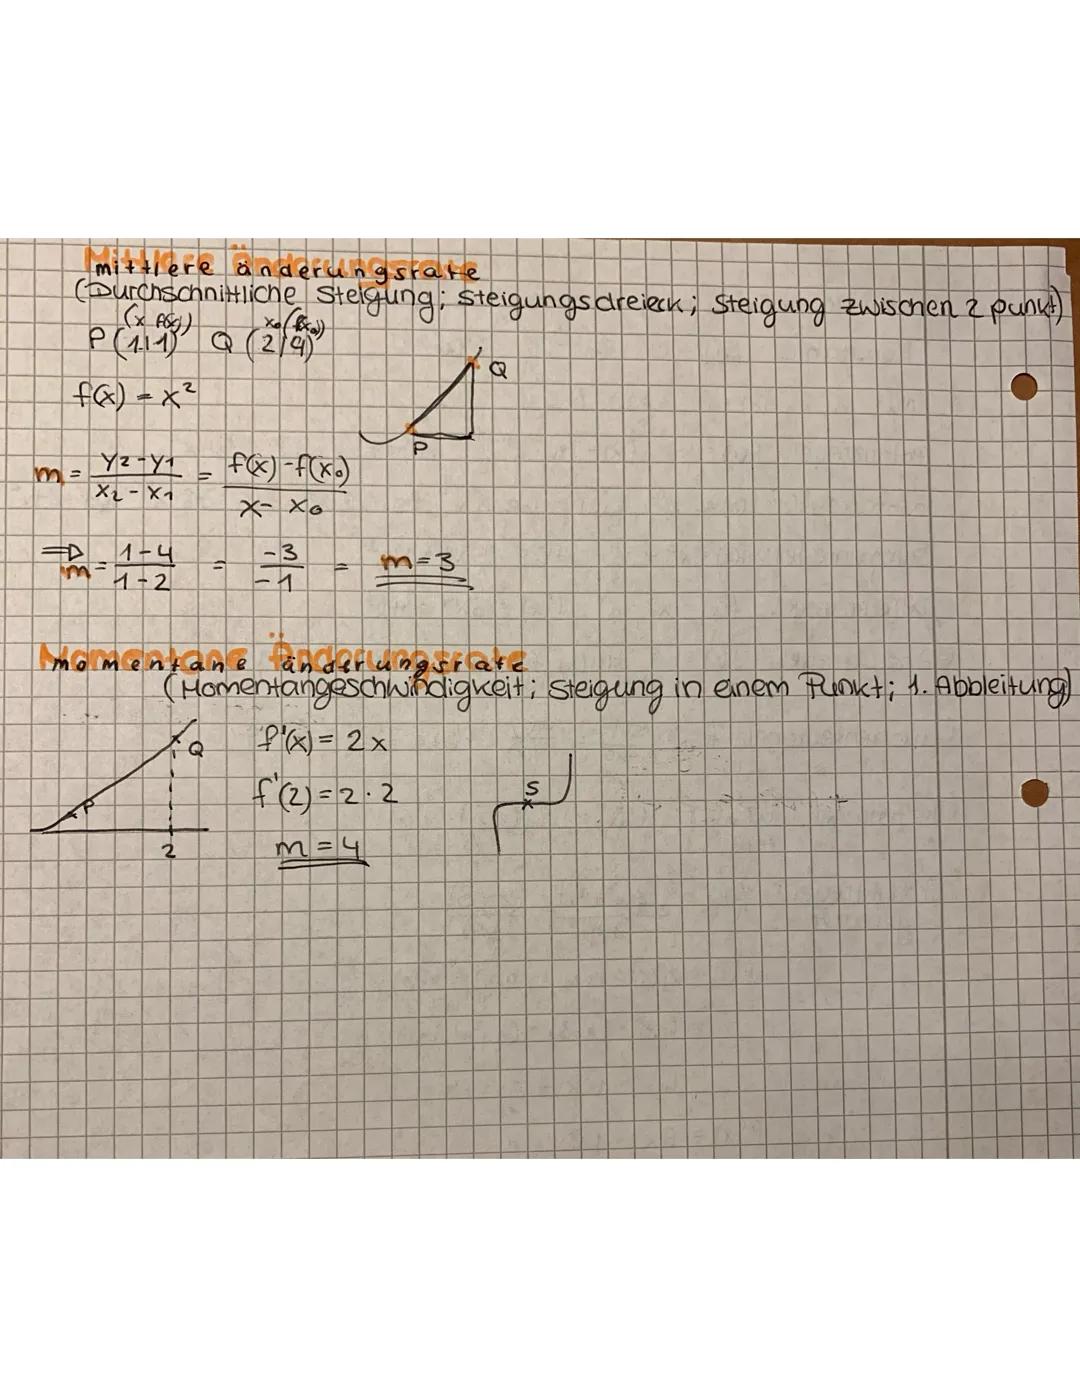 mittlere änderungsrate
(Durchschnittliche Steigung; Steigungsdreieck; Steigung zwischen 2 punkt)
(x f(x)) x₀ (f(x₀))
P (1|1) Q (2|4)
Q
f(x) = x²
P
m = y₂-y₁ / x₂-x₁ = f(x)-f(x₀) / x-x₀
⇒ m = 1-4 / 1-2 = -3 / -1 = m=3
momentane änderungsrate
(Momentangeschwindigkeit; Steigung in einem Punkt; 1. Abbleitung)
Q f'(x) = 2x
P f'(2) = 2·2 S
2 m = 4